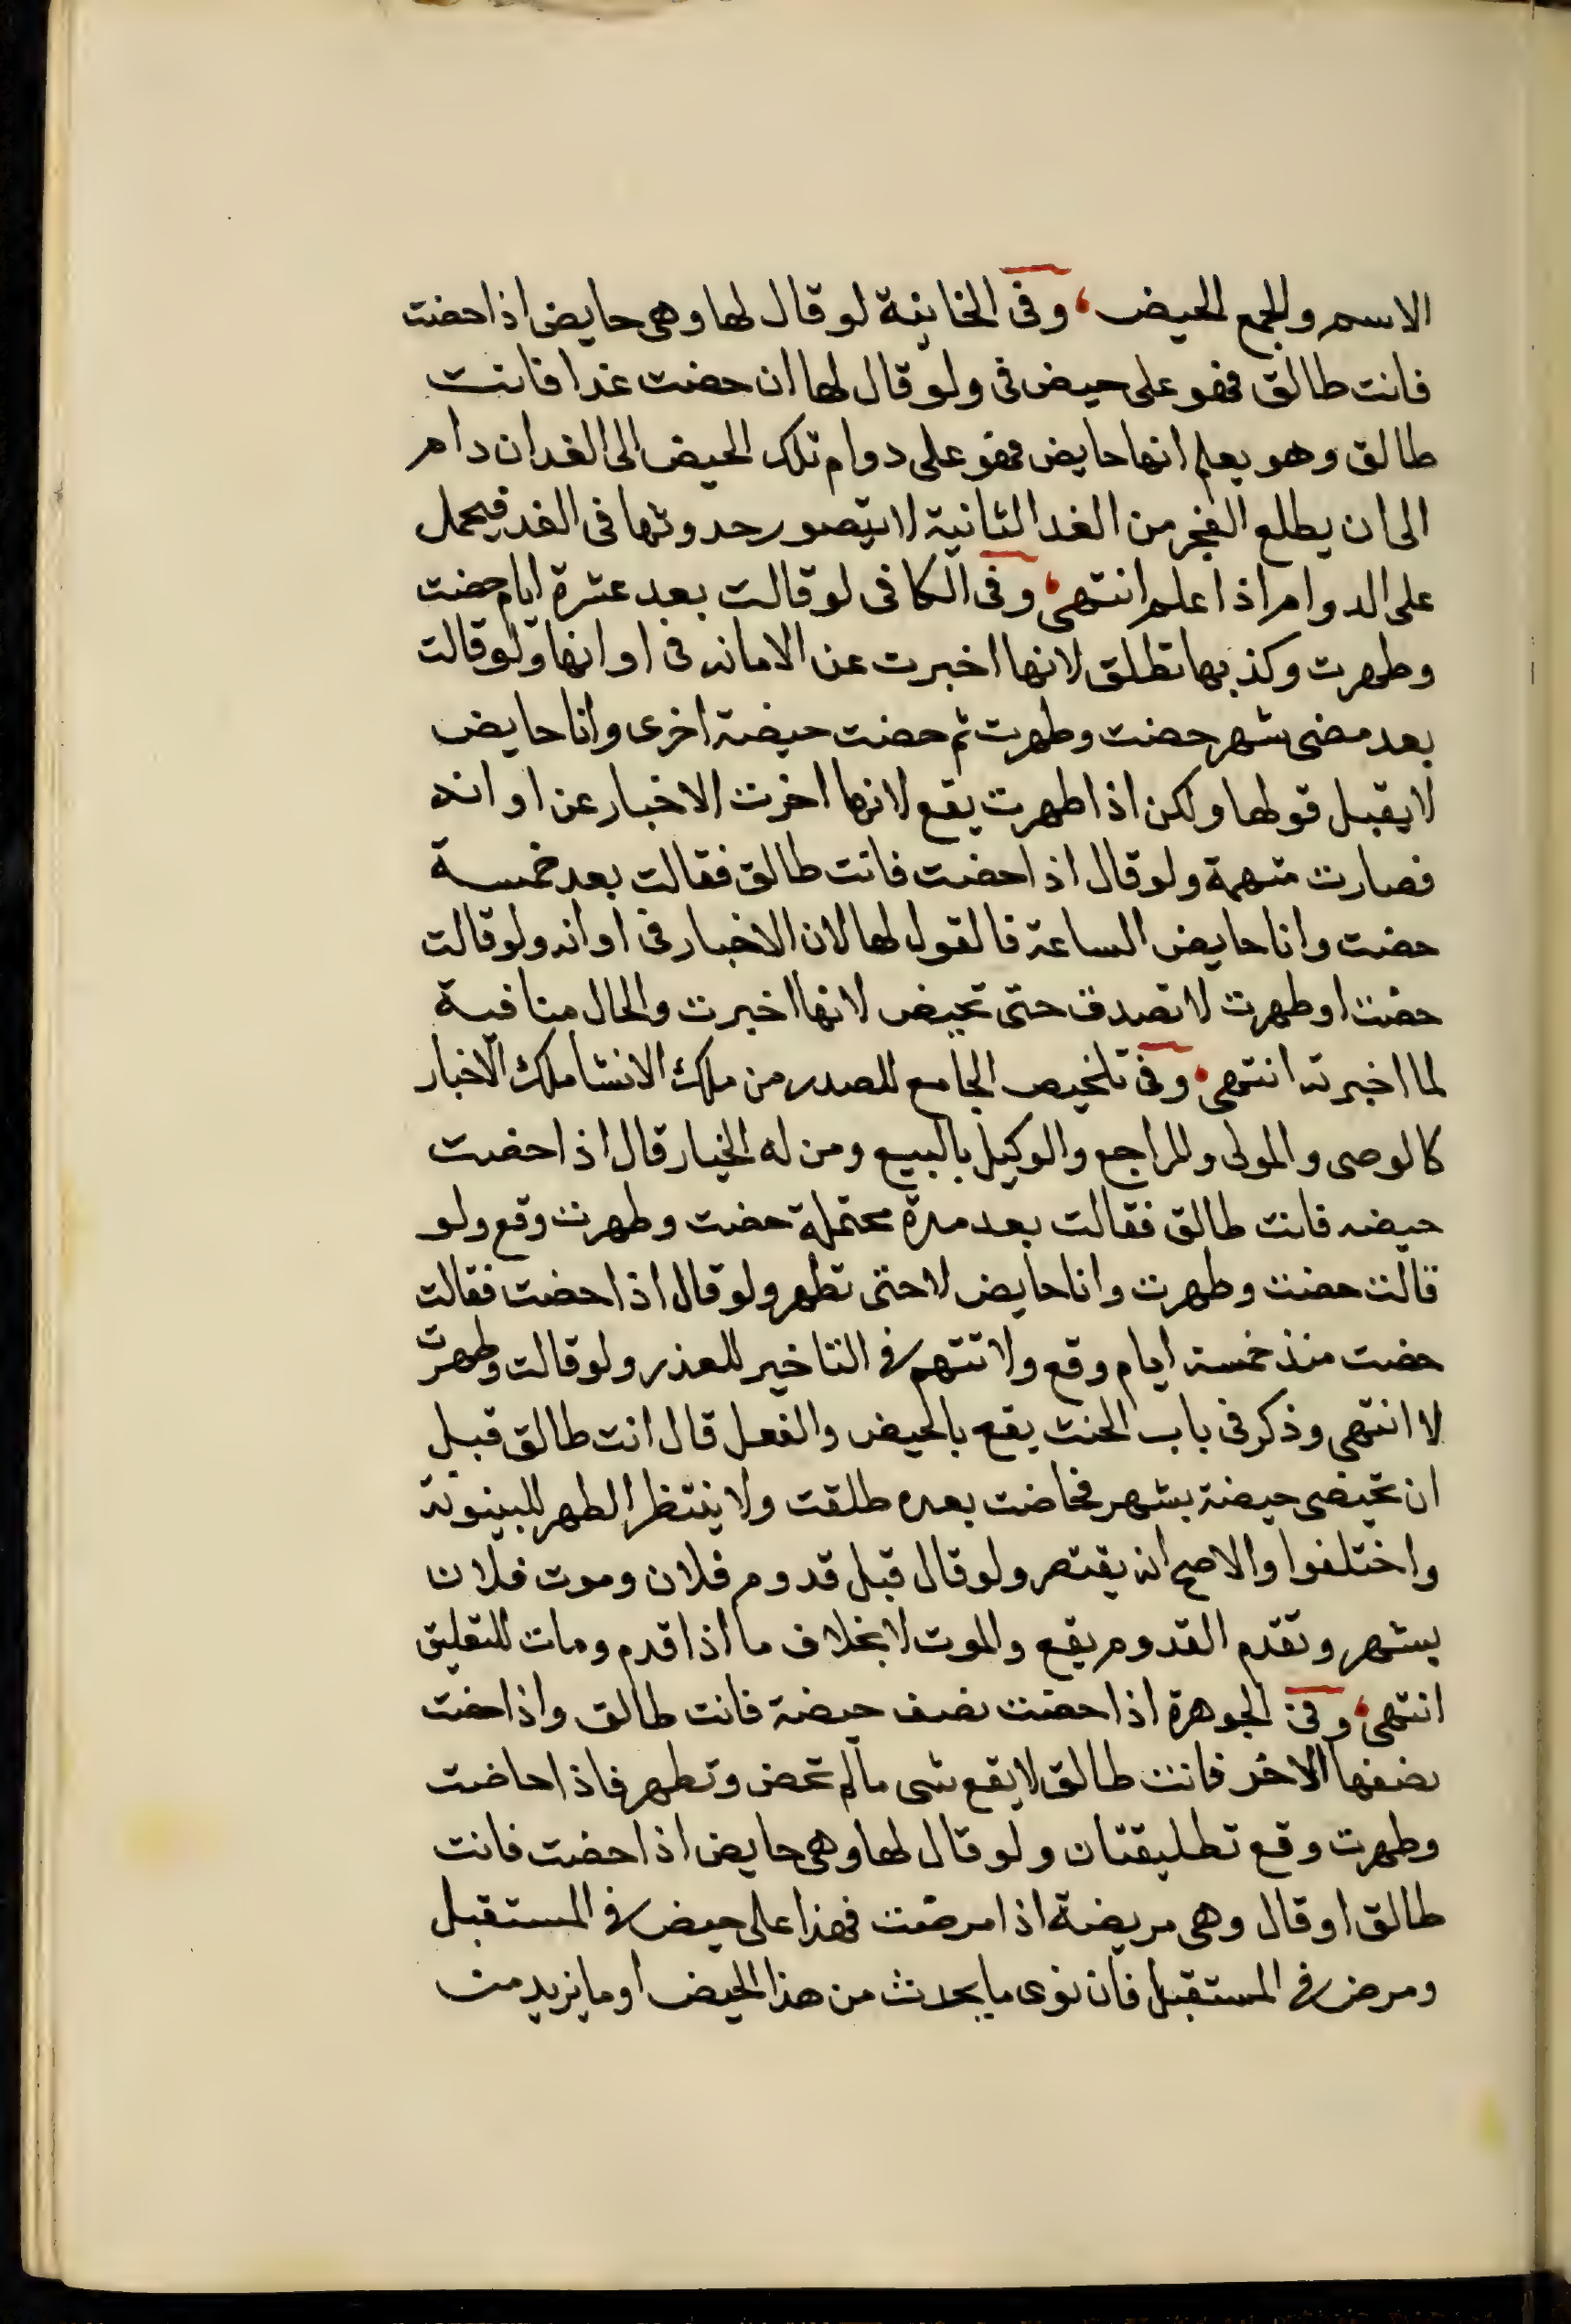 الاسم والجمع الحيض، وفى الخانية لو قال لها وهى حايض اذا حضت
فانت طالق فهو على حيض فى ولو قال لها ان حضت غدا فانت
طالق وهو يعلم انها حايض فهو على دوام تلك الحيض الى الغد ان دام
الى ان يطلع الفجر من الغد الثانية لا يتصور حدوثها فى الغد فيحمل
على الدوام اذا علم انتهى، وفى الكافى لو قالت بعد عشرة ايام حضت
وطهرت وكذبها تطلق لانها اخبرت عن الامانه فى اوانها ولو قالت
بعد مضى شهر حضت وطهرت ثم حضت حيضة اخرى وانا حايض
لا يقبل قولها ولكن اذا طهرت يقع لانها اخرت الاخبار عن اوانه
فصارت متهمة ولو قال اذا حضت فانت طالق فقالت بعد خمسة
حضت وانا حايض الساعة فالقول لها لان الاخبار فى اوانه ولو قالت
حضت او طهرت لا تصدق حتى تحيض لانها اخبرت والحال منافية
لما اخبرته انتهى، وفى تلخيص الجامع للصدر من ملك الانشا ملك الاخبار
كالوصى والمولى والمراجع والوكيل بالبيع ومن له الخيار قال اذا حضت
حيضه فانت طالق فقالت بعد مدة محتملة حضت وطهرت وقع ولو
قالت حضت وطهرت وانا حايض لا حتى تطهر ولو قال اذا حضت فقالت
حضت منذ خمسة ايام وقع ولا تتهم فى التاخير للعذر ولو قالت وطهرت
لا انتهى وذكر فى باب الحنث يقع بالحيض والفعل قال انت طالق قبل
ان تحيضى حيضة بشهر فحاضت بعده طلقت ولا ينتظر الطهر للبينونة
واختلفوا والاصح انه يقتصر ولو قال قبل قدوم فلان وموت فلان
بشهر وتقدم القدوم يقع والموت لا بخلاف ما اذا قدم ومات للتعليق
انتهى، وفى الجوهرة اذا حضت نصف حيضة فانت طالق واذا حضت
نصفها الاخر فانت طالق لا يقع شى مالم تحض وتطهر فاذا حاضت
وطهرت وقع تطليقتان ولو قال لها وهى حايض اذا حضت فانت
طالق او قال وهى مريضة اذا مرضت فهذا على حيض فى المستقبل
ومرض فى المستقبل فان نوى ما يحدث من هذا الحيض او ما يزيد من